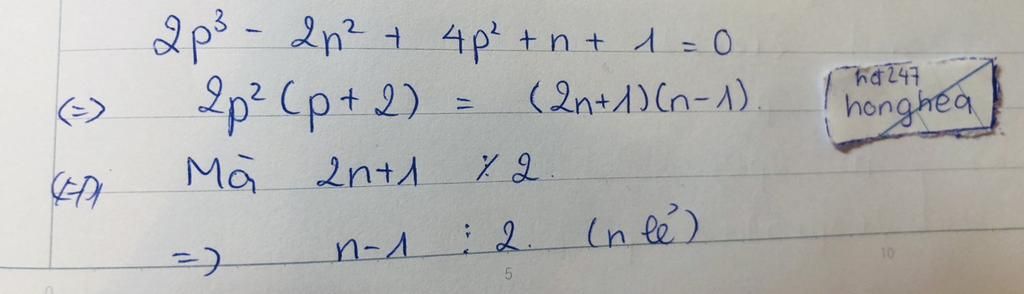 2p³ - 2n² + 4p² + n + 1 = 0
(=) 2p² (p + 2) = (2n+1)(n-1).
hđ247
honghea
Mà 2n+1 ⁒ 2.
=) n-1 ⋮ 2. (n lẻ)
0 5 10